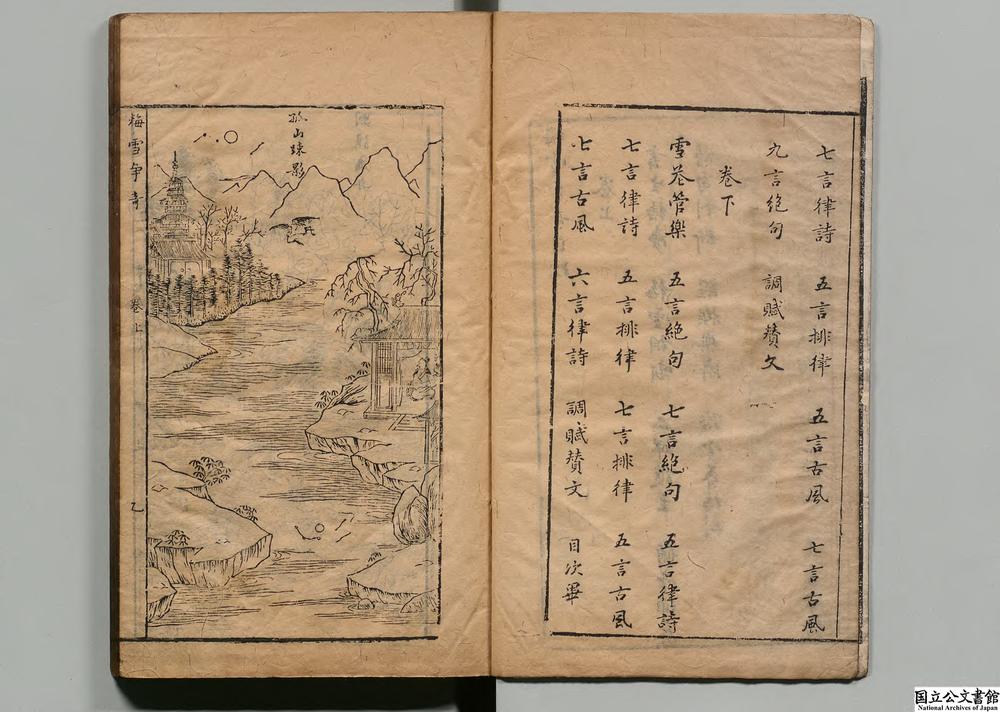 七言律詩 五言排律 五言古風 七言古風
九言絶句 調賦賛文
卷下
雪巻管樂 五言絶句 七言絶句 五言律詩
七言律詩 五言排律 七言排律 五言古風
七言古風 六言律詩 調賦賛文 目次畢
孤山踈影
梅雪争奇 卷上 乙
国立公文書館
National Archives of Japan